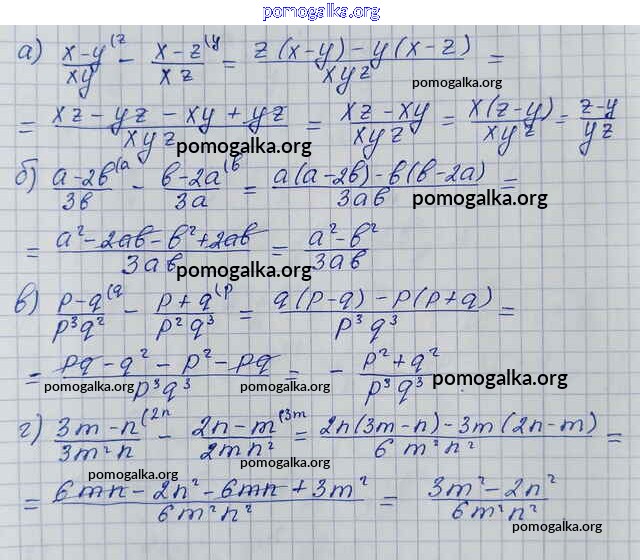 pomogalka.org
а) (x-y)/(xy) (z - (x-z)/(xz) (y = (z(x-y)-y(x-z))/(xyz) =
pomogalka.org
= (xz-yz-xy+yz)/(xyz) = (xz-xy)/(xyz) = (x(z-y))/(xyz) = (z-y)/(yz)
pomogalka.org
б) (a-2b)/(3b) (a - (b-2a)/(3a) (b = (a(a-2b)-b(b-2a))/(3ab) =
pomogalka.org
= (a²-2ab-b²+2ab)/(3ab) = (a²-b²)/(3ab)
pomogalka.org
в) (p-q)/(p³q²) (q - (p+q)/(p²q³) (p = (q(p-q)-p(p+q))/(p³q³) =
pomogalka.org
= (pq-q²-p²-pq)/(p³q³) = - (p²+q²)/(p³q³).
pomogalka.org pomogalka.org pomogalka.org
г) (3m-n)/(3m²n) (2n - (2n-m)/(2mn²) (3m = (2n(3m-n)-3m(2n-m))/(6m²n²) =
pomogalka.org
pomogalka.org
= (6mn-2n²-6mn+3m²)/(6m²n²) = (3m²-2n²)/(6m²n²)
pomogalka.org